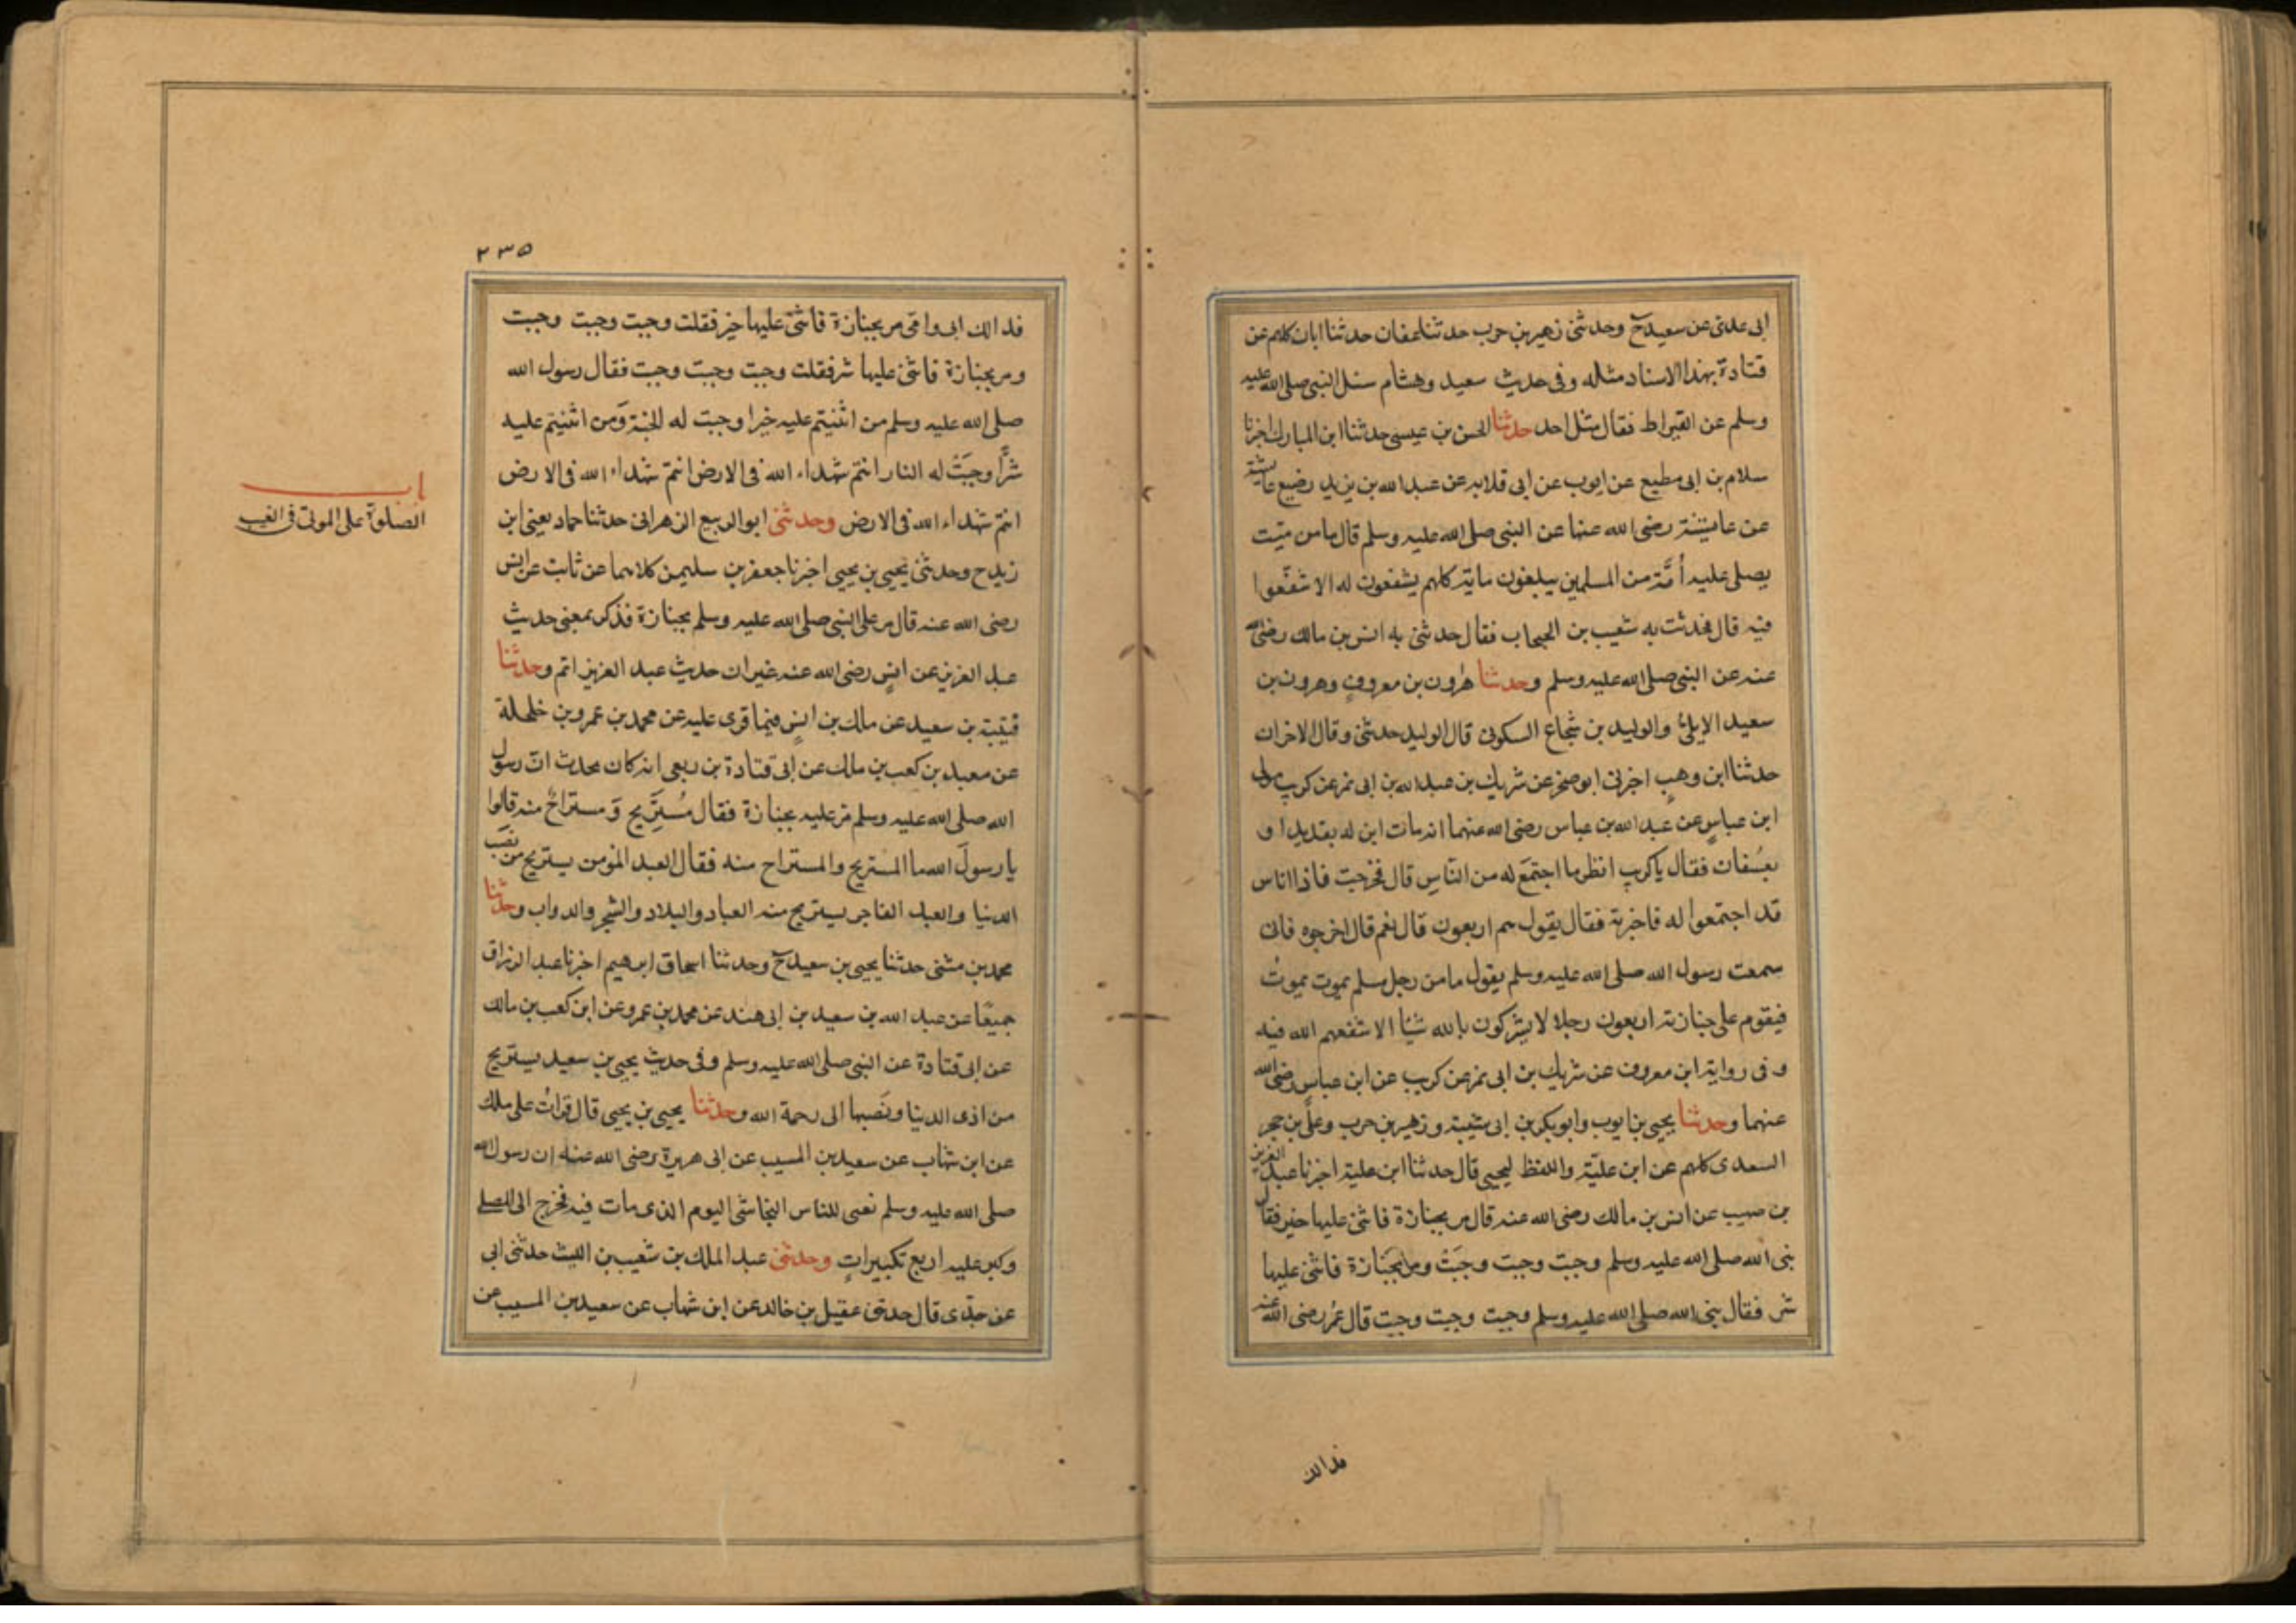 ابى عدى عن سعيد ح وحدثنى زهير بن حرب حدثنا عفان حدثنا ابان كلهم عن
قتادة بهذا الاسناد مثله وفى حديث سعيد وهشام سئل النبى صلى الله عليه
وسلم عن القيراط فقال مثل احد حدثنا الحسن بن عيسى حدثنا ابن المبارك اخبرنا
سلام بن ابى مطيع عن ايوب عن ابى قلابه عن عبد الله بن يزيد رضيع عايشة
عن عايشة رضى الله عنها عن النبى صلى الله عليه وسلم قال ما من ميّت
يصلى عليه اُمَّة من المسلمين يبلغون ماية كلهم يشفعون له الا شفّعوا
فيه قال فحدثت به شعيب بن الحبحاب فقال حدثنى به انس بن مالك رضى الله
عنه عن النبى صلى الله عليه وسلم وحدثنا هٰرون بن معروفٍ وهرون بن
سعيد الايلىُّ والوليد بن شجاع السكونى قال الوليد حدثنى وقال الاخران
حدثنا ابن وهبٍ اخبرنى ابو صخر عن شريك بن عبد الله بن ابى نمر عن كريب مولى
ابن عباسٍ عن عبد الله بن عباس رضى الله عنهما انه مات ابن له بقديد او
بعُسفان فقال ياكريب انظر ما اجتمَع له من النّاسِ قال فخرجت فاذا اناس
قد اجتمعوا له فاخبرته فقال يقول هم اربعون قال نعم قال اخرجوه فانى
سمعت رسول الله صلى الله عليه وسلم يقول ما من رجل مسلم يموت يموتُ
فيقوم على جنازته اربعون رجلا لا يشركون بالله شيًا الا شفعهم الله فيه
وفى رواية ابن معروف عن شريك بن ابى نمر عن كريب عن ابن عباسٍ رضى الله
عنهما وحدثنا يحيى بن ايوب وابو بكر بن ابى شيبة وزهير بن حرب وعلى بن حجر
السعدى كلهم عن ابن عليّة واللفظ ليحيى قال حدثنا ابن علية اخبرنا عبد العزيز
بن صهيب عن انس بن مالك رضى الله عنه قال مر بجنازة فاثنى عليها خير فقال
نبى الله صلى الله عليه وسلم وجبت وجبت وجَبَتْ ومر بجَنازة فاثنى عليها
شر فقال نبى الله صلى الله عليه وسلم وجبت وجبت وجبت قال عمُر رضى الله عنه
فدالك
٢٣٥
فدالك ابى وامى مر بجنازة فاثنىَ عليها خير فقلت وجبت وجبت وجبت
ومر بجنازة فاثنى عليها شر فقلت وجبت وجبت وجبت فقال رسول الله
صلى الله عليه وسلم من اثنيتم عليه خيرا وجبت له الجنة وَمن اثنيتم عليه
شرًّا وجَبَتْ له النار انتم شهداء الله فى الارض انتم شهداء الله فى الارض
انتم شهداء الله فى الارض وحدثنى ابو الربيع الزهرانى حدثنا حماد يعنى ابن
زيد ح وحدثنى يحيى بن يحيى اخبرنا جعفر بن سليمن كلاهما عن ثابت عن انس
رضى الله عنه قال مر على النبى صلى الله عليه وسلم بجنازة فذكر بمعنى حديث
عبد العزيز عن انسٍ رضى الله عنه غير ان حديث عبد العزيز اتم وحدثنا
قتيبة بن سعيد عن مالك بن انسٍ فيما قرى عليه عن محمد بن عمرو بن حلحلة
عن معبد بن كعب بن مالك عن ابى قتادة بن ربعى انه كان يحدث انّ رسول
الله صلى الله عليه وسلم مر عليه بجنازة فقال مُستَرِيح وَ مستراحٌ منه قالوا
يا رسولَ الله ما المستريح والمستراح منه فقال العبد المؤمن يستريح من نصَب
الدنيا والعبد الفاجر يستريح منه العباد والبلاد والشجر والدواب وحدثنا
محمد بن مثنى حدثنا يحيى بن سعيد ح وحدثنا اسحاق ابرهيم اخبرنا عبد الرزاق
جميعًا عن عبد الله بن سعيد بن ابى هند عن محمد بن عمرو عن ابن كعب بن مالك
عن ابى قتادة عن النبى صلى الله عليه وسلم وفى حديث يحيى بن سعيد يستريح
من اذى الدنيا ونَصَبها الى رحمة الله وحدثنا يحيى بن يحيى قال قراتُ على ملك
عن ابن شهاب عن سعيد بن المسيب عن ابى هريرة رضى الله عنه ان رسول الله
صلى الله عليه وسلم نعى للناس النجاشى اليوم الذى مات فيه فخرج الى المصلى
وكبر عليه اربع تكبيراتٍ وحدثنى عبد الملك بن شعيب بن الليث حدثنى ابى
عن جدّى قال حدثنى عقيل بن خالد عن ابن شهاب عن سعيد بن المسيب عن
باب
الصلوة على الموتى فى الغيب